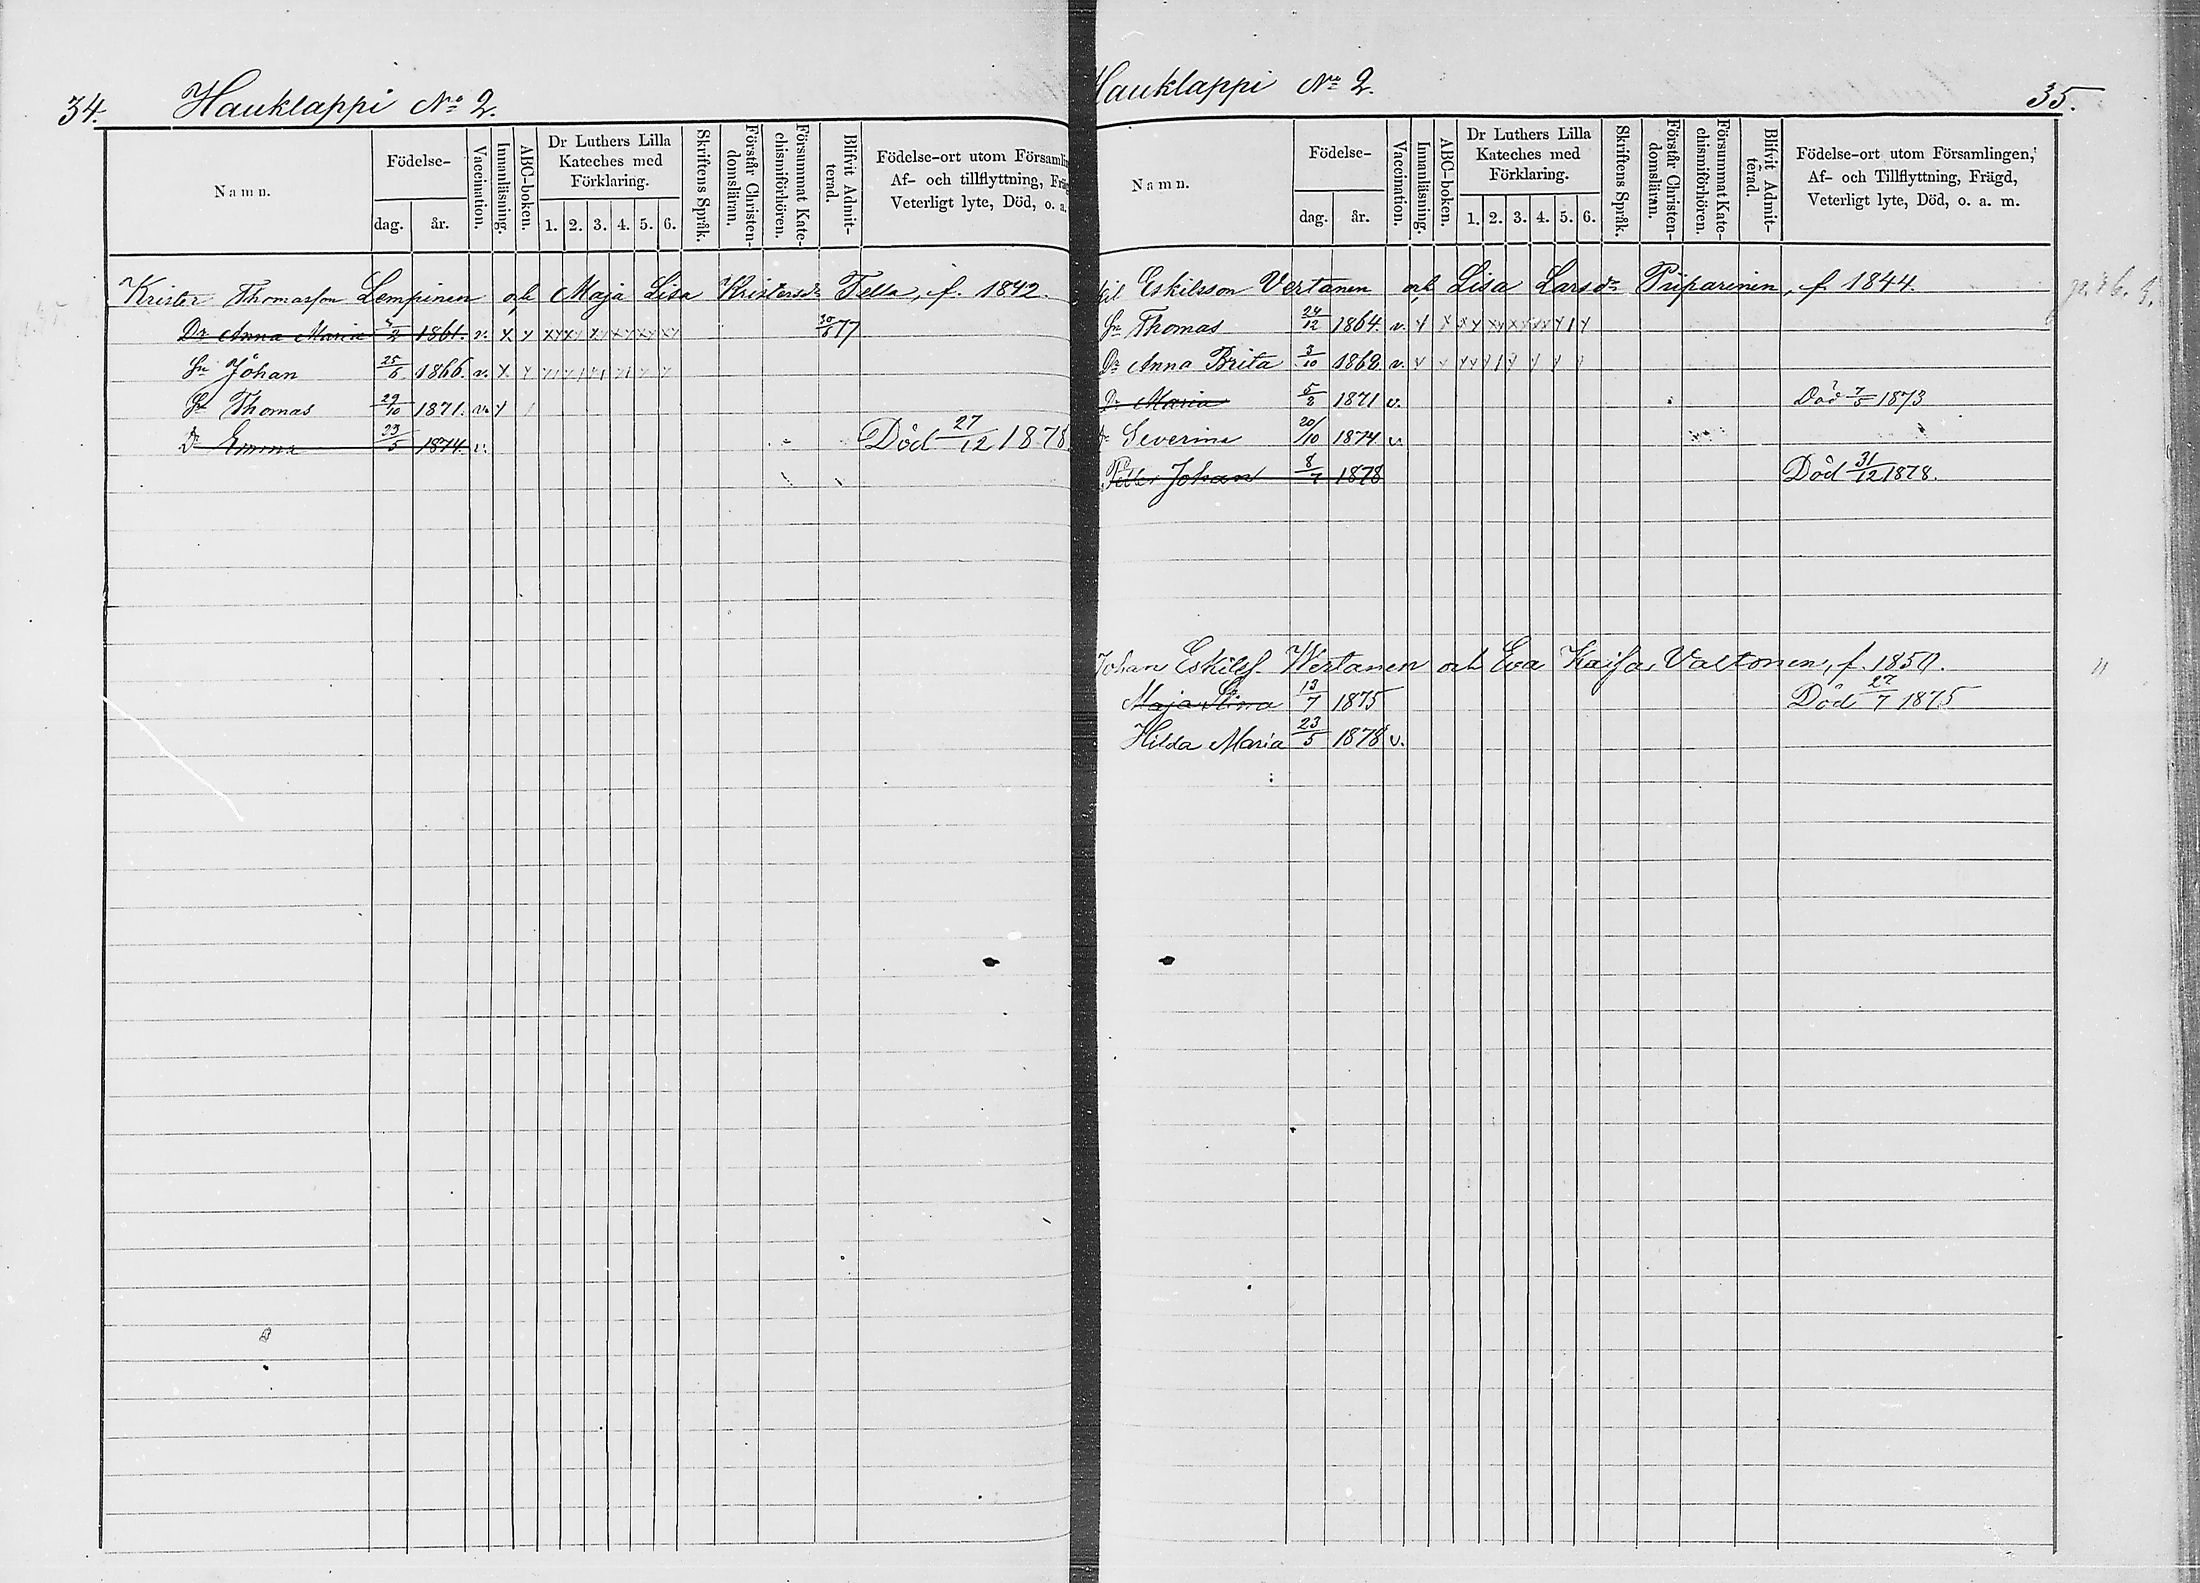 34. Hauklappi No 2.
Namn. Födelse- dag. år. Vaccination. Innanläsning. ABC-boken. Dr Luthers Lilla Kateches med Förklaring. 1. 2. 3. 4. 5. 6. Skriftens Språk. Förstår Christen-domsläran. Försummat Kate-chismiförhören. Blifvit Admit-terad. Födelse-ort utom Församlin Af- och tillflyttning, Fräg Veterligt lyte, Död, o. a.
Krister Thomasson Lempinen och Maja Lisa Kristersdr Tella, f. 1842.
Dr Anna Maria 1861. v. x y 30/6 77
Sn Johan 25/5 1866. v. x y
Sn Thomas 29/10 1871. v. y
Dr Emma 23/5 1874. v. Död 27/12 1878.
Hauklappi No 2. 35.
Namn. Födelse- dag. år. Vaccination. Innanläsning. ABC-boken. Dr Luthers Lilla Kateches med Förklaring. 1. 2. 3. 4. 5. 6. Skriftens Språk. Förstår Christen-domsläran. Försummat Kate-chismiförhören. Blifvit Admit-terad. Födelse-ort utom Församlingen, Af- och Tillflyttning, Frägd, Veterligt lyte, Död, o. a. m.
kil Eskilsson Vertanen och Lisa Larsdr Piiparinen, f. 1844.
Sn Thomas 24/12 1864. v.
Dr Anna Brita 3/10 1868. v.
Dr Maria 5/8 1871 v. Död 7/5 1873
Dr Severina 20/10 1874 v.
Petter Johan 8/7 1878 Död 31/12 1878.
Johan Eskilss. Wertanen och Eva Kaisa Valtonen, f. 1850.
Maja Stina 13/7 1875 Död 27/7 1875
Hilda Maria 23/5 1878 v.